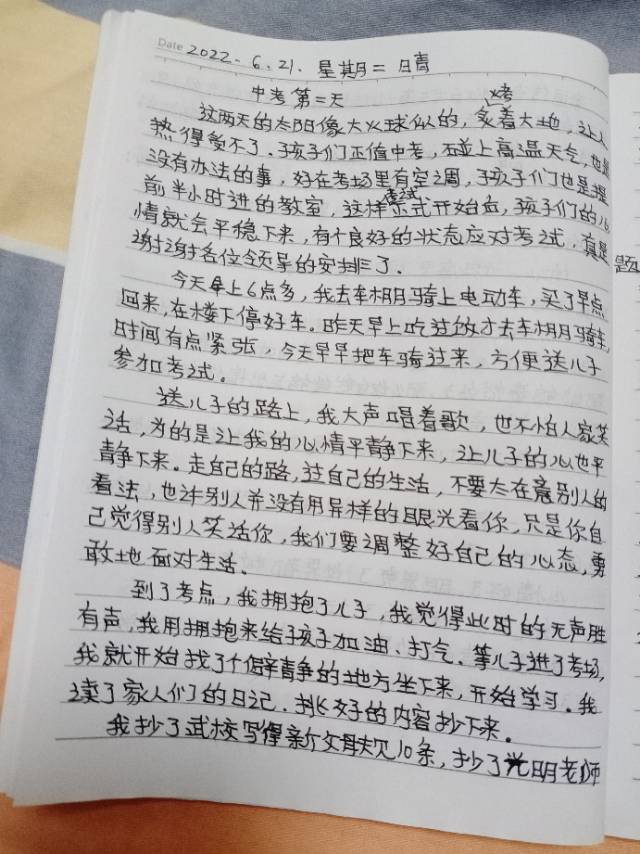 Date 2022.6.21. 星期二 晴
中考第二天
这两天的太阳像大火球似的,烤着大地,让人
热得受不了。孩子们正值中考,碰上高温天气,也是
没有办法的事,好在考场里有空调,孩子们也是提
前半小时进的教室,这样正式考试开始后,孩子们的心
情就会平稳下来,有个良好的状态应对考试,真是
谢谢各位领导的安排了。
今天早上6点多,我去车棚骑上电动车,买了早点
回来,在楼下停好车。昨天早上吃过饭才去车棚骑车,
时间有点紧张,今天早早把车骑过来,方便送儿子
参加考试。
送儿子的路上,我大声唱着歌,也不怕人家笑
话,为的是让我的心情平静下来,让儿子的心也平
静下来。走自己的路,过自己的生活,不要太在意别人的
看法,也许别人并没有用异样的眼光看你,只是你自
己觉得别人笑话你,我们要调整好自己的心态,勇
敢地面对生活。
到了考点,我拥抱了儿子,我觉得此时的无声胜
有声,我用拥抱来给孩子加油、打气。等儿子进了考场,
我就开始找了个僻静的地方坐下来,开始学习。我
读了家人们的日记.挑好的内容抄下来。
我抄了武校写得新父母规10条,抄了光明老师
题